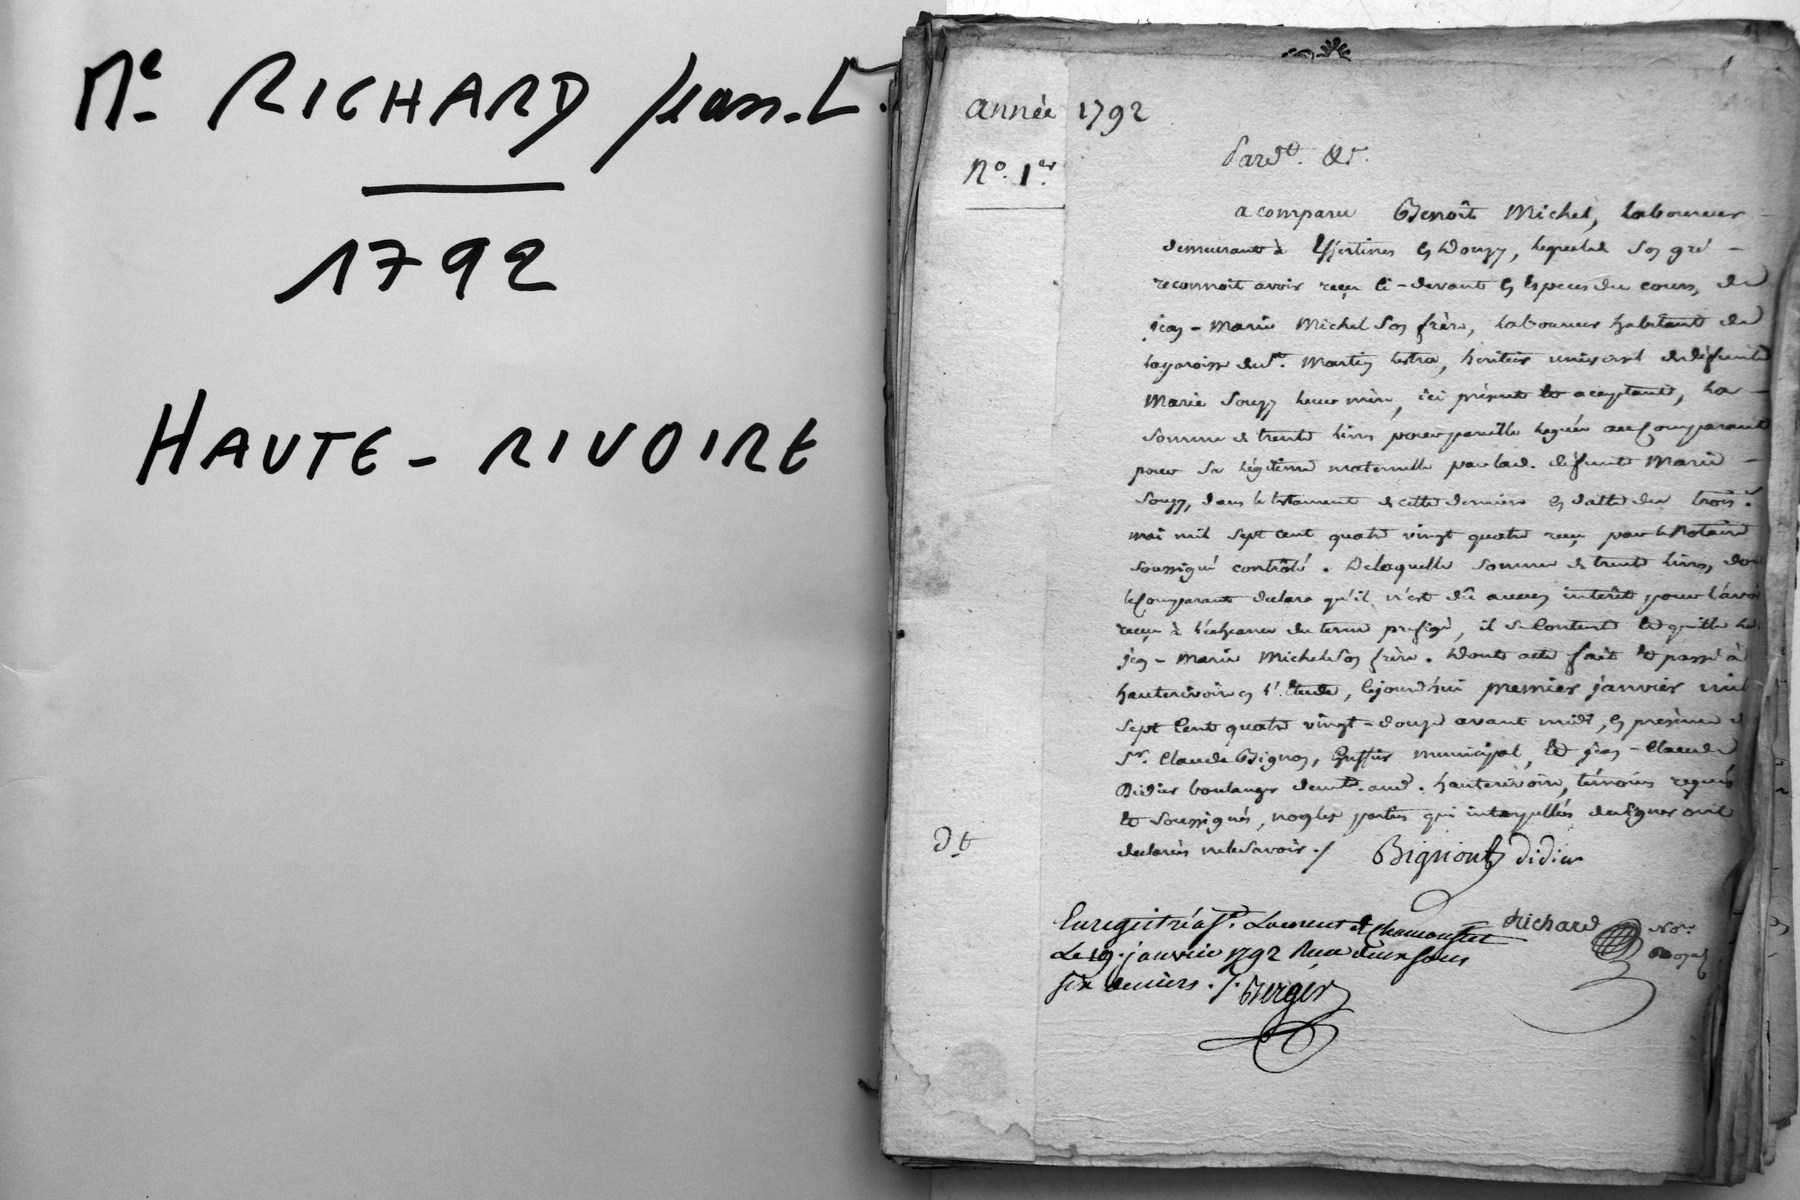 Me RICHARD Jean-C.
1792
HAUTE-RIVOIRE
année 1792
No. 1er.
Pardt. &r.
a comparu Benoît Michel, laboureur
demeurant à Essertines en Donzy, lequel de son gré
reconnoit avoir reçu ci-devant en especes du cours, de
jean-Marie Michel son frère, laboureur habitant de
la paroisse de St. Martin Lestra, héritier universel de défunte
Marie Souzy leur mère, ici présent et acceptant, la
somme de trente livres pour pareille leguée au Comparant
pour sa légitime maternelle par lad. défunte Marie
Souzy, dans le testament de cette derniere en datte du trois
mai mil sept cent quatre vingt quatre reçu par le Notaire
soussigné contrôlé. De laquelle somme de trente livres, dont
le Comparant declare qu'il n'est dû aucun intérêt pour l'avoir
reçue à l'échéance du terme prefigé, il se Contente et quitte le
jean-Marie Michel son frère. Dont acte fait et passé à
hauterivoire en l'Etude, cejourd'hui premier janvier mil
sept Cent quatre vingt-douze avant midi, en présence de
Sr. Claude Bignon, Greffier municipal, et jean-Claude
Didier boulanger demt. aud. hauterivoire, témoins requis
et soussignés, non les parties qui interpellées de signer ont
declarés ne le savoir./. Bigniont Didier
dt
Enregistré à St. Laurent de Chamousset
Le 19. janvier 1792 Reçu deux sous
six deniers./. Berger
Richard Nore.
Royal